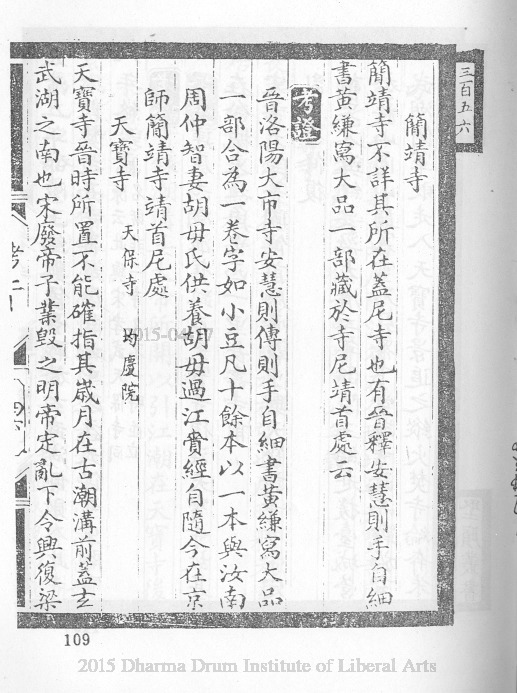 三百五六
簡靖寺
簡靖寺不詳其所在蓋尼寺也有晉釋安慧則手自細
書黃縑寫大品一部藏於寺尼靖首處云
考證
晉洛陽大市寺安慧則傳則手自細書黃縑寫大品
一部合為一卷字如小豆凡十餘本以一本與汝南
周仲智妻胡毋氏供養胡毋過江賷經自隨今在京
師簡靖寺靖首尼處
天寶寺 天保寺 均慶院
天寶寺晉時所置不能確指其歲月在古潮溝前蓋玄
武湖之南也宋廢帝子業毀之明帝定亂下令興復梁
109
2015 Dharma Drum Institute of Liberal Arts